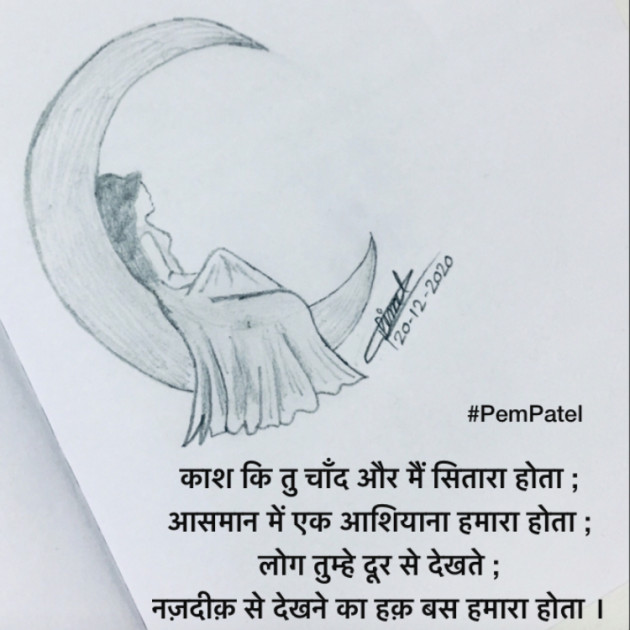 20-12-2020
#PemPatel
काश कि तु चाँद और मैं सितारा होता ;
आसमान में एक आशियाना हमारा होता ;
लोग तुम्हे दूर से देखते ;
नज़दीक़ से देखने का हक़ बस हमारा होता ।